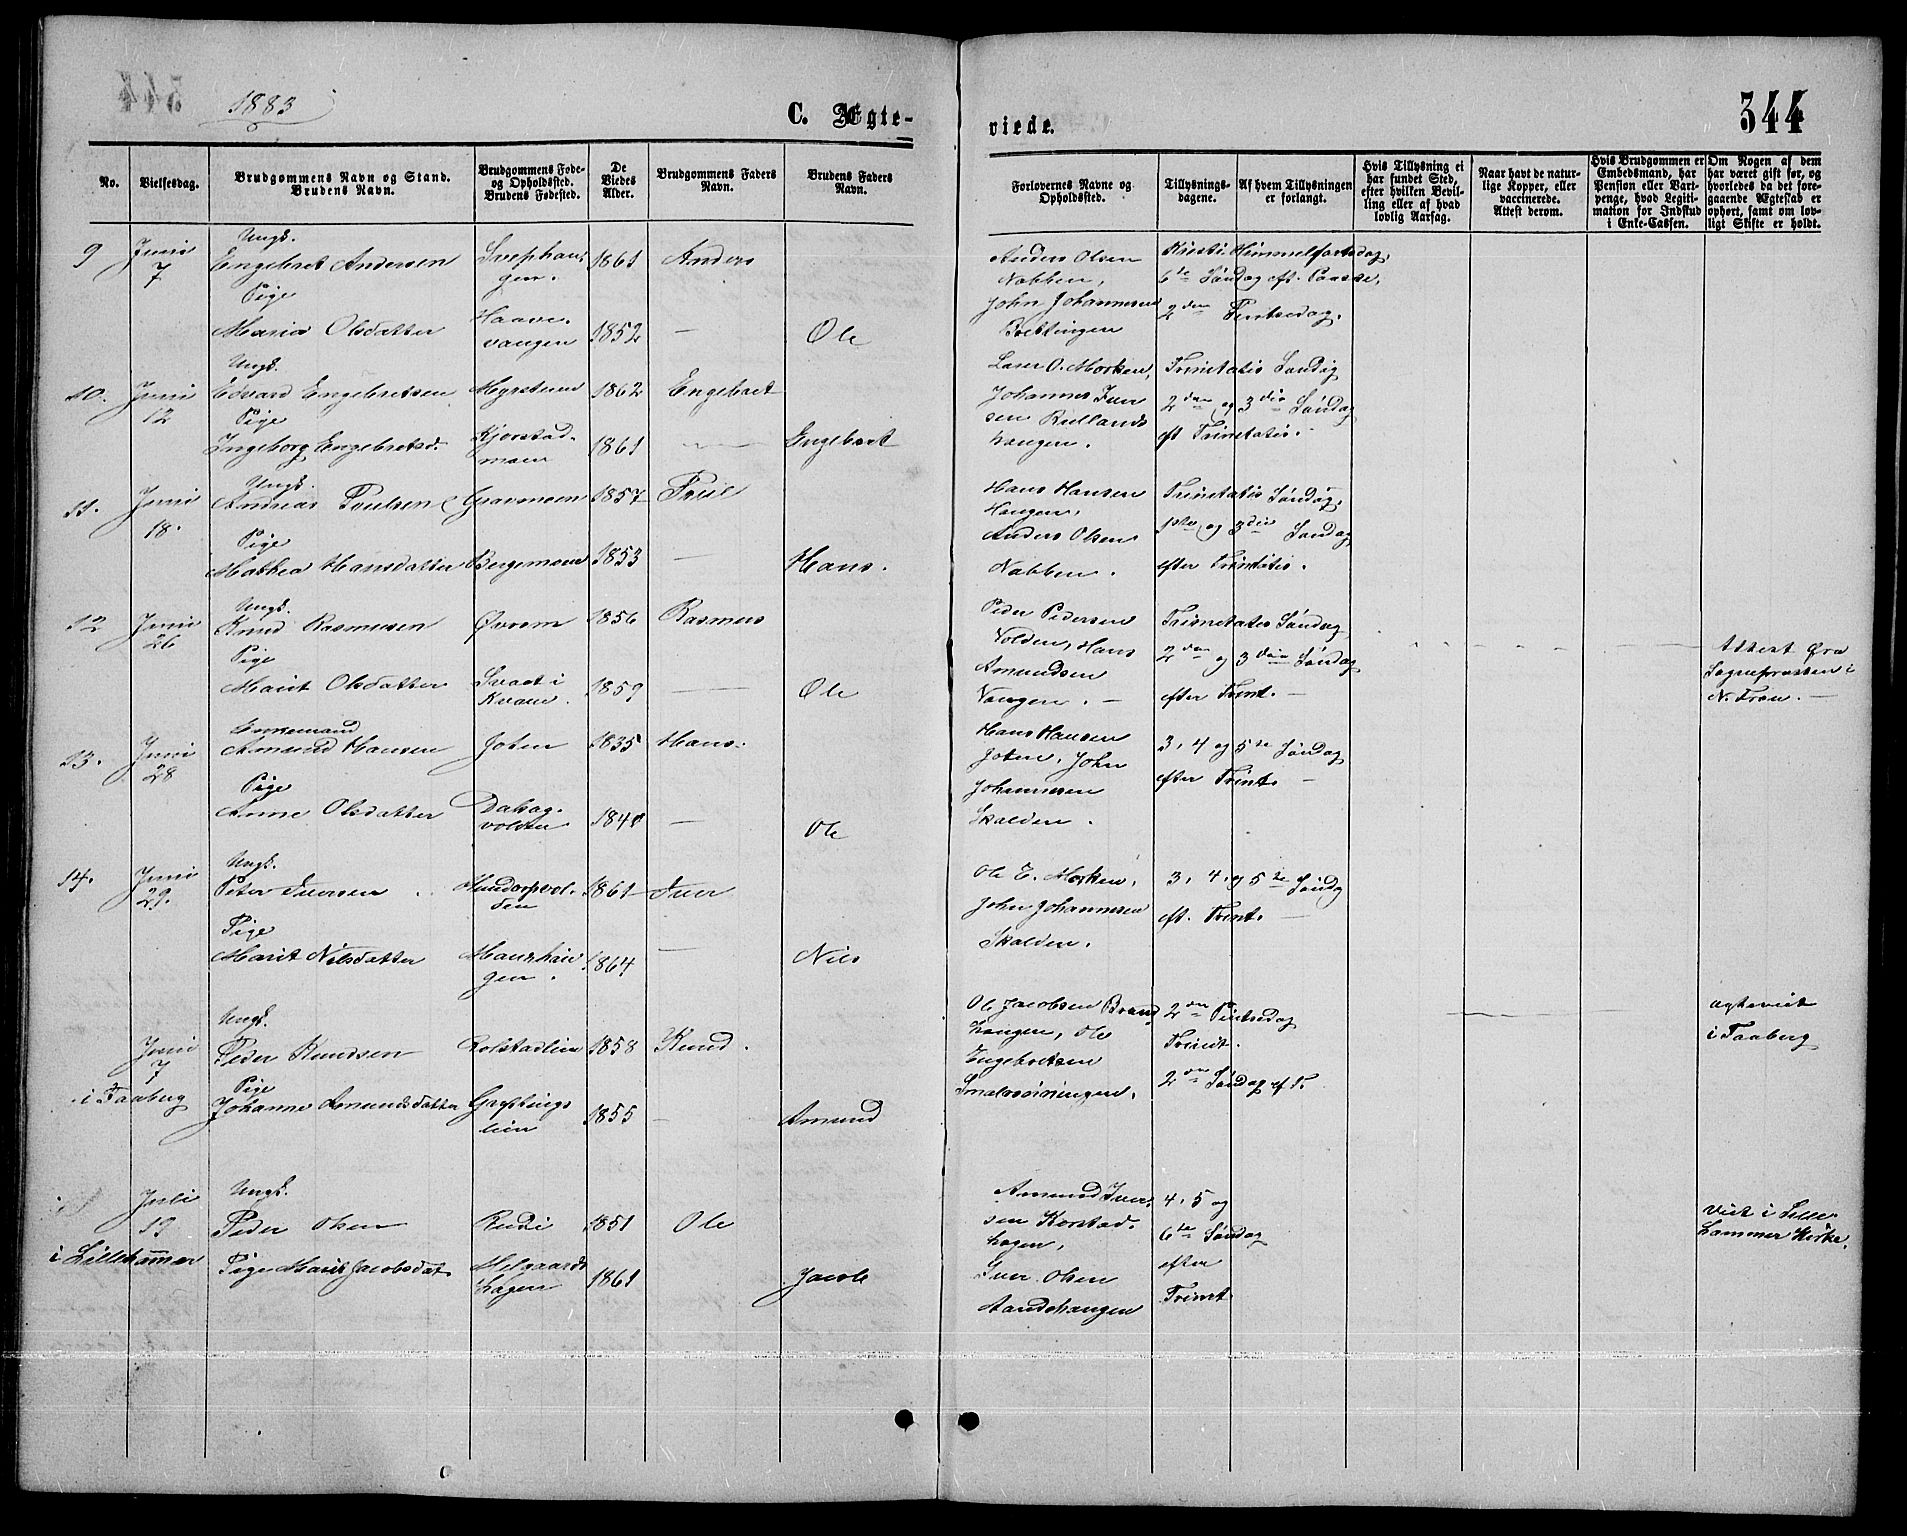 1883
C. Ægte-
viede.
344
No.
Vielsesdag.
Brudgommens Navn og Stand.
Brudens Navn.
Brudgommens Føde-
og Opholdssted.
Brudens Fødested.
De
Viedes
Alder.
Brudgommens Faders
Navn.
Brudens Faders
Navn.
Forlovernes Navne og
Opholdssted.
Tillysnings-
dagene.
Af hvem Tillysningen
er forlangt.
Hvis Tillysning ei
har fundet Sted,
efter hvilken Bevil-
ling eller af hvad
lovlig Aarsag.
Naar havt de natur-
lige Kopper, eller
vaccinerede.
Attest derom.
Hvis Brudgommen er
Embedsmand, har
Pension eller Vart-
penge, hvad Legiti-
mation for Indskud
i Enke-Cassen.
Om Nogen af dem
har været gift før, og
hvorledes da det fore-
gaaende Ægteskab er
ophørt, samt om lov-
ligt Skifte er holdt.
9 Juni 7
Ungk.
Engebret Andersen
1861 Anders
Pige
Maria Olsdatter
Haave-
vangen
1852 — Ole
Anders Olsen
Nabben,
John Johannesen
Brettingen
Kristi Himmelfartsdag,
6te Søndag eft. Paaske,
2den Pintsedag.
10. Juni 12
Ungk.
Edvard Engebretsen
Myrsteen 1862 Engebret
Pige
Ingeborg Engebretsd.
Kjorstad-
moen
1861 — Engebret
Lars O. Morken,
Johannes Iver
sen Rullands
haugen.
Trinitatis Søndag
2den og 3die Søndag
eft Trinitatis.
11. Juni 18.
Ungk.
Andreas Poulsen
Gravmoen 1857
Pige
Mathea Hansdatter
Bergemoen 1853 — Hans.
Hans Hansen
Haugen,
Anders Olsen
Nabben.
Trinitatis Søndag,
1ste og 3die Søndag
efter Trinitatis.
12 Juni 26
Ungk.
Knud Rasmusen
Øvrem 1856 Rasmus
Pige
Marit Olsdatter
Svaet i
Kvam.
1859 — Ole
Peder Pedersen
Volden, Hans
Amundsen
Vangen. —
Trinitatis Søndag
2den og 3die Søndag
efter Trint. —
Attest fra
Sognepræsten i
N. Fron. —
13. Juni 28
Enkemand
Amund Hansen
Joten 1835 Hans.
Pige
Anne Olsdatter
volden
1840 — Ole
Hans Hansen
Joten, John
Johannesen
Skalden.
3, 4 og 5te Søndag
efter Trint. —
14. Juni 29.
Ungk.
Peter Iversen
Hundorpvol-
den
1861 Iver
Pige
Marit Nilsdatter
Maurhau
gen.
1864 — Nils
Ole E. Morken,
John Johannesen
Skalden.
3, 4. og 5te Søndg
eft. Trint. —
Juni 7
i Faaberg
Ungk.
Peder Knudsen
Rolstadlien 1858 Knud.
Pige
Johanne Amundsdatter
Græftings
lien
1855 — Amund
Ole Jacobsen Brand
haugen, Ole
Engebretsen
2den Pintsdag
Trinit.
2den Søndag ef T.
ægteviet
i Faaberg
Juli 19
i Lillehammer
Ungk.
Peder Olsen
Rudi 1851 Ole
Pige Marit Jacobsdat.
Melgaards
hagen
1861 Jacob
Amund Iver
sen Korstad-
hagen,
Iver Olsen
Aandehaugen
4, 5 og
6te Søndag
efter
Trint.
viet i Lille-
hammer Kirke.